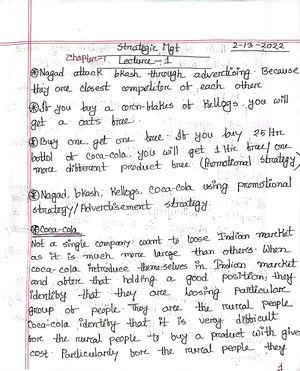 Strategic Mgt 2-13-2022
Chapter-1 Lecture-1
Nagad attack bkash through advertising. Because
they are closest competitor of each other
If you buy a corn-flakes of Kellogs you will
get a oats free.
Buy one, get one free. If you buy 25 Htr
bottol of coca-cola, you will get 1 Htr free/ one
more different product free (Promotional strategy)
Nagad, bkash, Kellogs, coca-cola using promotional
strategy/Advertisement strategy.
Coca-cola
Not a single company want to loose Indian market
as it is much large than others. When
coca-cola introduce themselves in Indian market
and after that holding a good position, they
identify that they are loosing particular
group of people. They are the rural people
Coca-cola identify that it is very difficult
for the rural people to buy a product with give
cost. Particularly for the rural people they
1